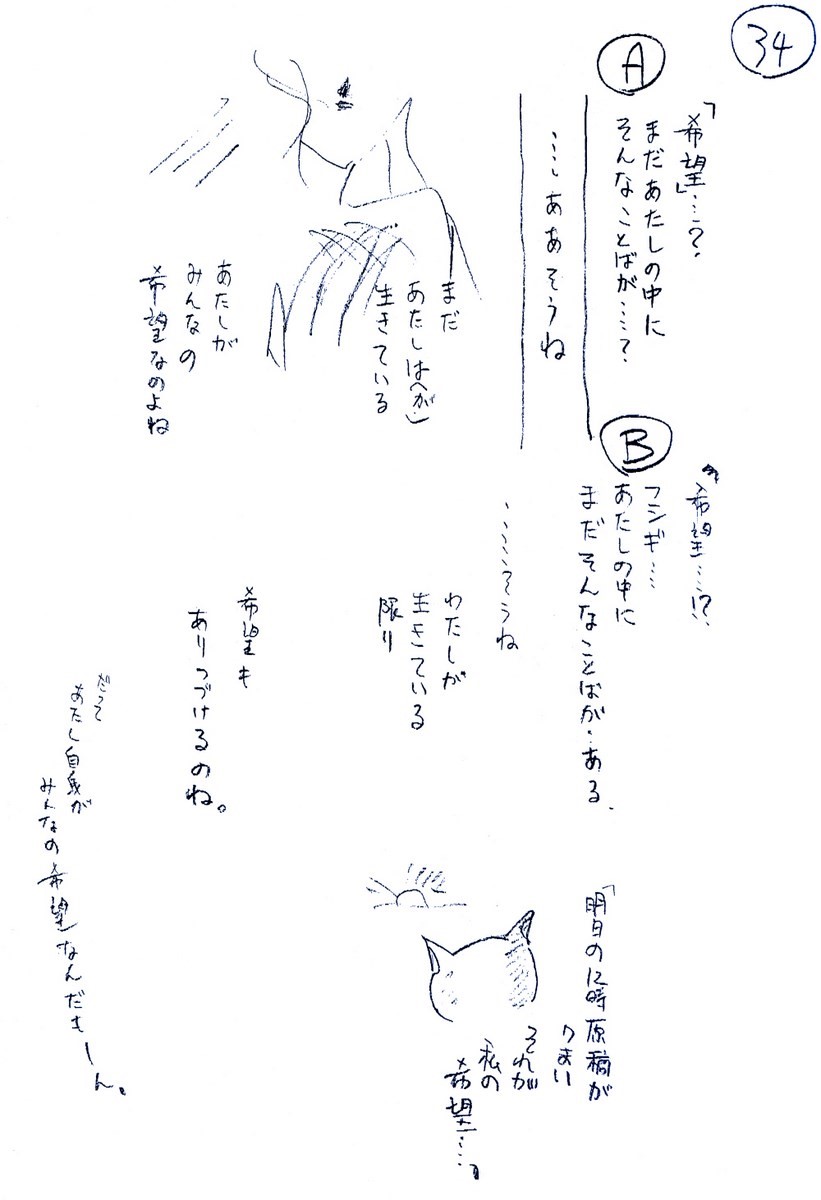 34
A
「希望」…？
まだあたしの中に
そんなことばが……？
……ああそうね
まだ
あたしは(が)
生きている
あたしが
みんなの
希望なのよね
B
希望…!?
フシギ……
あたしの中に
まだそんなことばが‥ある.
………そうね
わたしが
生きている
限り
希望も
ありつづけるのね。
だって
あたし自身が
みんなの希望なんだもーん。
「明日の12時原稿が
それが
私の
希望…。」